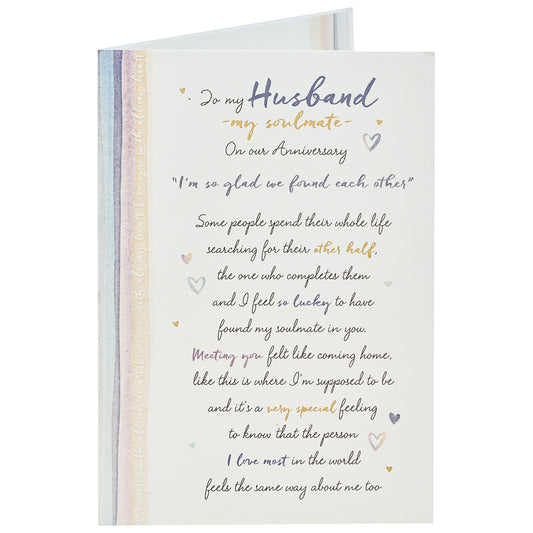 To my Husband
-my soulmate-
On our Anniversary
"I'm so glad we found each other"
Some people spend their whole life
searching for their other half,
the one who completes them
and I feel so lucky to have
found my soulmate in you.
Meeting you felt like coming home,
like this is where I'm supposed to be
and it's a very special feeling
to know that the person
I love most in the world
feels the same way about me too